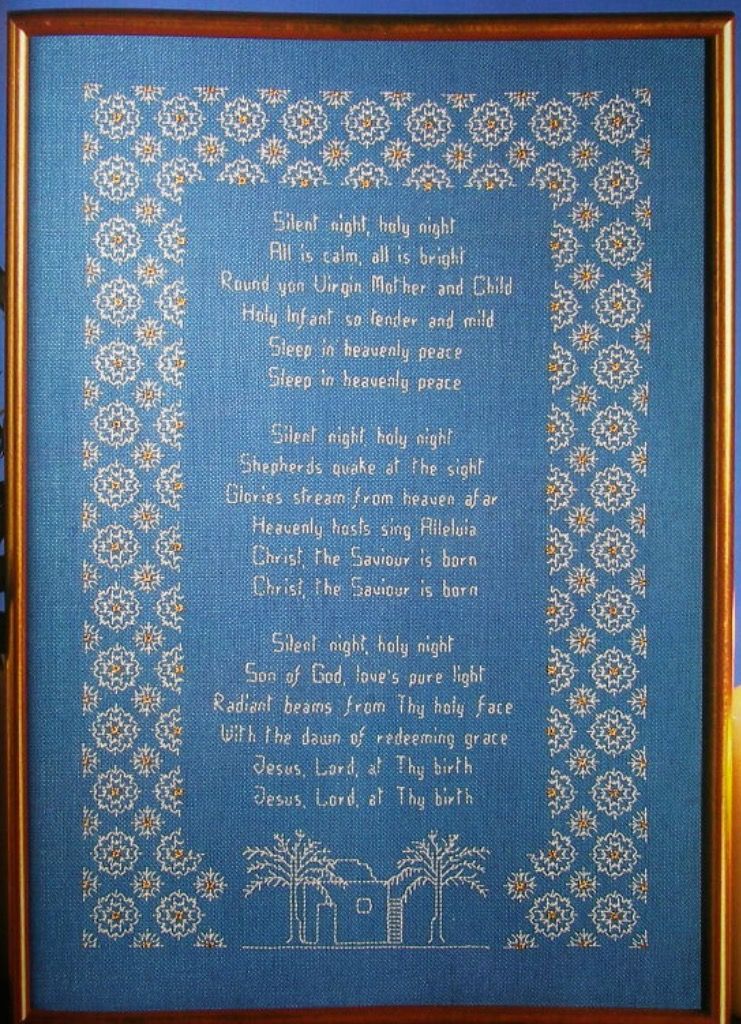 Silent night, holy night
All is calm, all is bright
Round yon Virgin Mother and Child
Holy Infant so tender and mild
Sleep in heavenly peace
Sleep in heavenly peace
Silent night holy night
Shepherds quake at the sight
Glories stream from heaven afar
Heavenly hosts sing Alleluia
Christ, the Saviour is born
Christ, the Saviour is born
Silent night, holy night
Son of God, love's pure light
Radiant beams from Thy holy face
With the dawn of redeeming grace
Jesus, Lord, at Thy birth
Jesus, Lord, at Thy birth